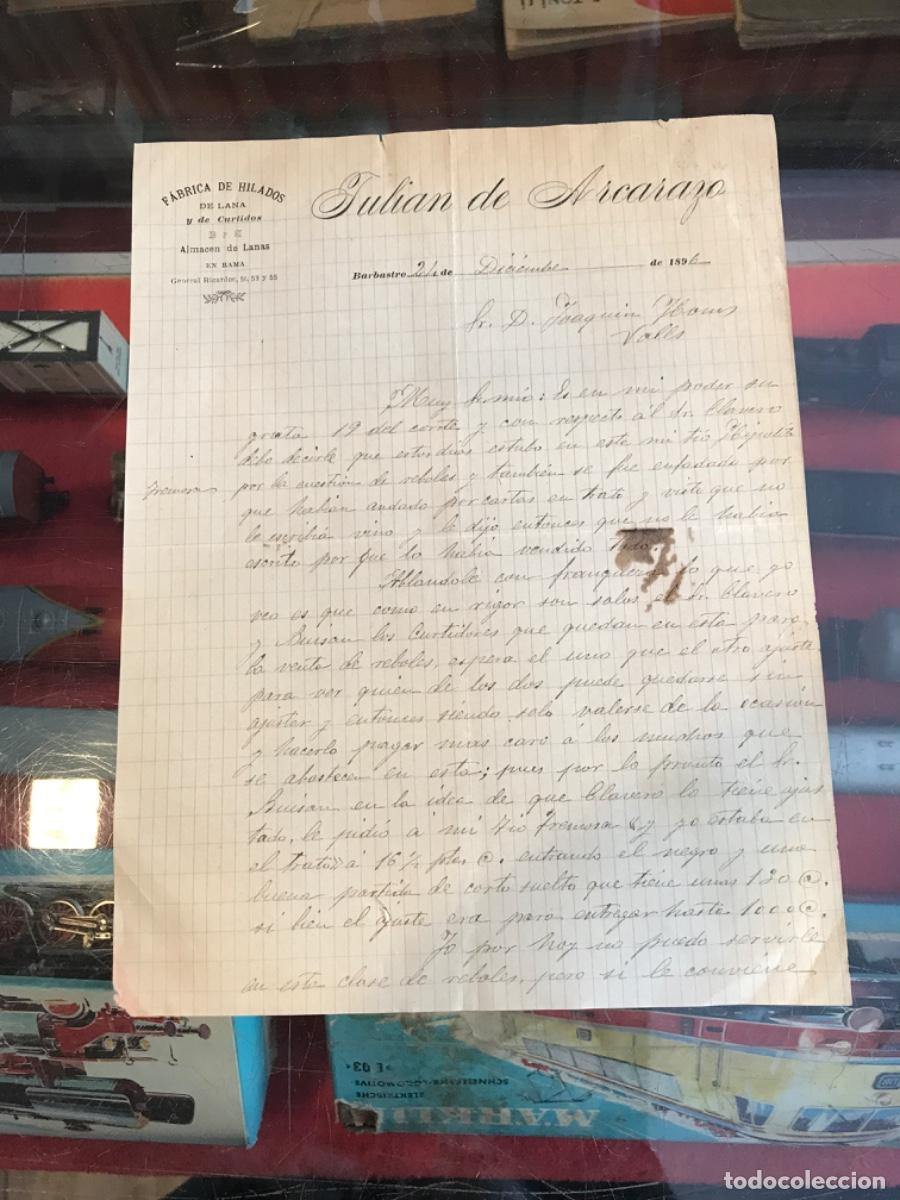 FÁBRICA DE HILADOS
DE LANA
y de Curtidos
Almacen de Lanas
EN RAMA
General Ricardos, 51, 53 y 55
Julian de Arcarazo
Barbastro 21 de Diciembre de 1896
Sr. D. Joaquin Homs
Valls
Muy Sr mio: Es en mi poder su
grata 19 del corrte y con respecto al Sr. Clavero
debo decirle que estos dias estubo en esta mi tio Hipolito
Fremosa
por la cuestion de reboles y tambien se fue enfadado por
que habian andado por cartas en trato y visto que no
le escribia vino y le dijo entonces que no le habia
escrito por que lo habia vendido todo.
Hablandole con franqueza lo que yo
veo es que como en rigor son solos el Sr. Clavero
y Buisan los Curtidores que quedan en esta para
la venta de reboles, espera el uno que el otro ajuste
para ver quien de los dos puede quedarse sin
ajustar y entonces siendo solo valerse de la ocasión
y hacerlo pagar mas caro á los muchos que
se abastecen en esta; pues por lo pronto el Sr.
Buisan en la idea de que Clavero lo tiene ajus
tado, le pidió á mi tio Fremosa "y yo estaba en
el trato" á 16 ½ ptas @. entrando el negro y una
buena partida de corto suelto que tiene unas 130 @.
si bien el ajuste era para entregar hasta 1000 @.
Yo por hoy no puedo servirle
en esta clase de reboles, pero si le conviene
E 03
ELEKTRISCHE
SCHNELLZUG-LOKOMOTIVE
MARKLIN
todocoleccion.net